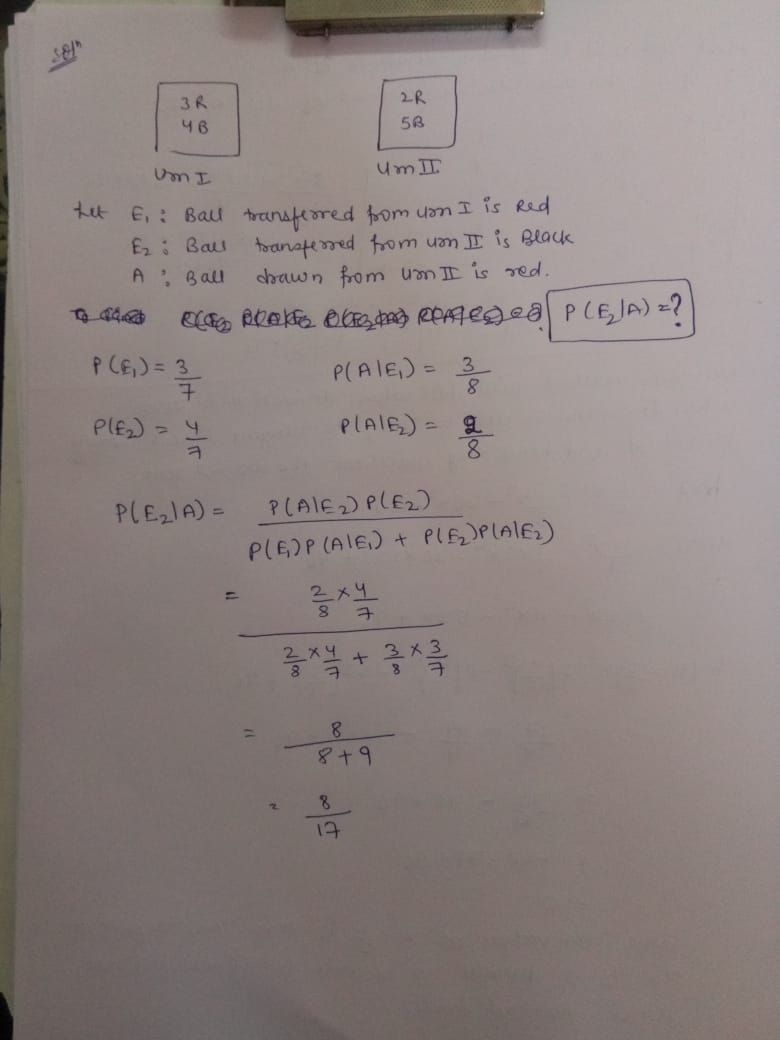 Solⁿ
3R 2R
4B 5B
Urn I Urn II
Let E₁ : Ball transferred from urn I is Red
E₂ : Ball transferred from urn II is Black
A : Ball drawn from urn II is red.
P(E₂|A) = ?
P(E₁) = 3/7 P(A|E₁) = 3/8
P(E₂) = 4/7 P(A|E₂) = 2/8
P(E₂|A) = P(A|E₂) P(E₂) / P(E₁) P(A|E₁) + P(E₂) P(A|E₂)
= 2/8 × 4/7 / 2/8 × 4/7 + 3/8 × 3/7
= 8 / 8+9
= 8/17